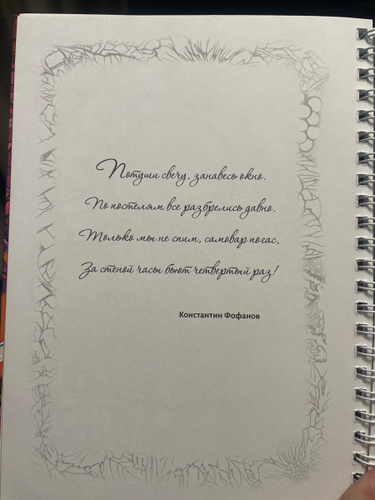 Потуши свечу, занавесь окно.
По постелям все разбрелись давно.
Только мы не спим, самовар погас,
За стеной часы бьют четвертый раз!
Константин Фофанов